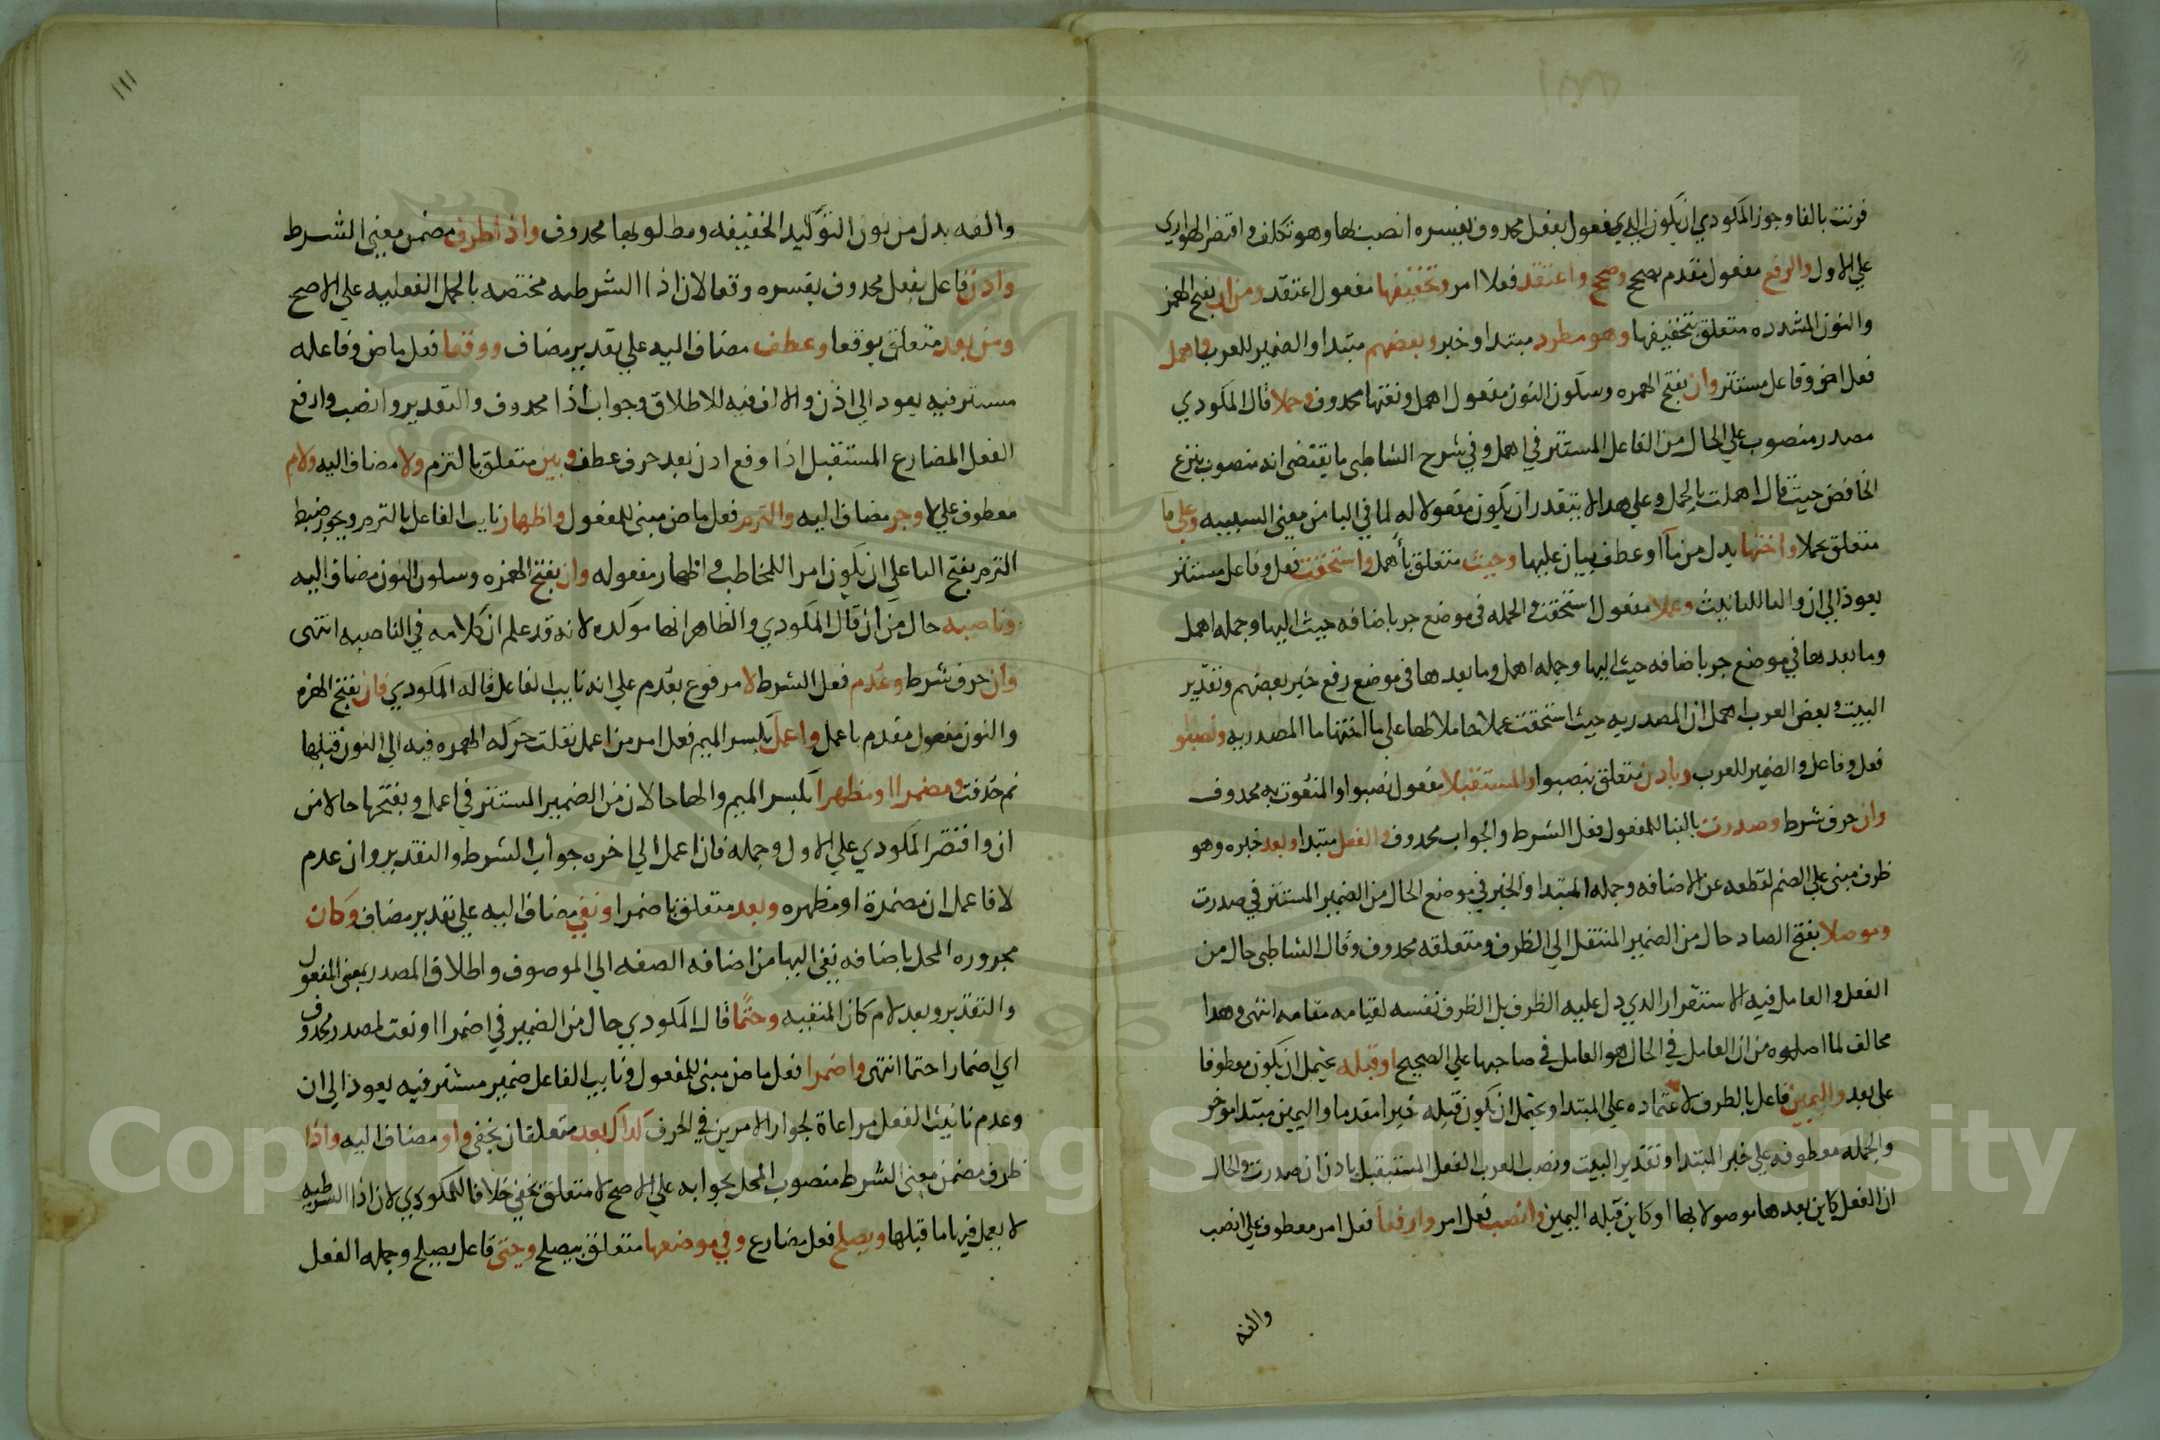 قرنت بالفا وجوز المكودي ان يكون الذي مفعول بفعل محذوف يفسره انصب بها وهو تكلف و اقتصر الهواري
علي الاول والرفع مفعول مقدم بصحح وصحح واعتقد فعلا امر وتخفيفها مفعول اعتقد ومن ان بفتح الهمز
والنون المشدده متعلق بتخفيفها وهو مطرد مبتدا وخبر وبعضهم مبتدا والضمير للعرب واهمل
فعل ماض وفاعل مستتر وان بفتح الهمزه وسكون النون مفعول اهمل ونعتها محذوف وحملا قال المكودي
مصدر منصوب علي الحال من الفاعل المستتر في اهمل وفي شرح الشاطبي ما يقتضي انه منصوب بنزع
الخافض حيث قال اهملت بالحمل وعلي هذا لا يتعذر ان يكون مفعولا له لما في البا من معني السببيه وعلي ما
متعلق بحملا واختها بدل من ما او عطف بيان عليها وحيث متعلق بأهمل واستحقت فعل وفاعل مستتر
يعود الي ان والتا للتانيث وعملا مفعول استحقت والجمله في موضع جر باضافه حيث اليها وجمله اهمل
وما بعدها في موضع جر باضافه حيث اليها وجمله اهمل وما بعدها في موضع رفع خبر بعضهم وتقدير
البيت وبعض العرب اهمل ان المصدريه حيث استحقت عملا حاملا لها علي ما اختها ما المصدريه ونصبوا
فعل وفاعل والضمير للعرب وباذن متعلق بنصبوا والمستقبلا مفعول نصبوا والمنعوت به محذوف
وان حرف شرط وصدرت بالبنا للمفعول فعل الشرط والجواب محذوف والفعل مبتدا وبعد خبره وهو
ظرف مبني علي الضم لقطعه عن الاضافه وجمله المبتدا والخبر في موضع الحال من الضمير المستتر في صدرت
وموصلا بفتح الصاد حال من الضمير المنتقل الي الظرف ومتعلقه محذوف وقال الشاطبي حال من
الفعل والعامل فيه الاستقرار الذي دل عليه الظرف بل الظرف نفسه لقيامه مقامه انتهي وهذا
مخالف لما اصلوه من ان العامل في الحال هو العامل في صاحبها علي الصحيح او قبله يحتمل ان يكون معطوفا
علي بعد واليمين فاعل بالظرف لاعتماده علي المبتدا ويحتمل ان يكون قبله خبرا مقدما واليمين مبتدا موخر
والجمله معطوفه علي خبر المبتدا وتقدير البيت ونصب العرب الفعل المستقبل باذن ان صدرت والحال
ان الفعل كاين بعدها موصولا بها او كاين قبله اليمين وانصب فعل امر وارفعا فعل امر معطوف علي انصب
والفه
١١١
والفه بدل من نون التوكيد الخفيفه ومطلوبها محذوف واذا ظرف مضمن معني الشرط
واذن فاعل بفعل محذوف يفسره وقعا لان اذا الشرطيه مختصه بالجمل الفعليه علي الاصح
ومن بعد متعلق بوقعا وعطف مضاف اليه علي تقدير مضاف ووقعا فعل ماض وفاعله
مستتر فيه يعود الي اذن والالف فيه للاطلاق وجواب اذا محذوف والتقدير وانصب وارفع
الفعل المضارع المستقبل اذا وقع اذن بعد حرف عطف وبين متعلق بالتزم ولا مضاف اليه ولام
معطوف علي لا وجر مضاف اليه والتزم فعل ماض مبني للمفعول واظهار نايب الفاعل بالتزم ويجوز ضبط
التزم بفتح التا علي ان يكون امرا للمخاطب و اظهار مفعوله وان بفتح الهمزه وسكون النون مضاف اليه
وناصبه حال من ان قال المكودي والظاهر انها موكده لانه قد علم ان كلامه في الناصبه انتهي
وان حرف شرط وعدم فعل الشرط لا مرفوع بعدم علي انه نايب الفاعل قاله المكودي فان بفتح الهمزه
والنون مفعول مقدم باعمل واعمل بكسر الميم فعل امر من اعمل نقلت حركه الهمزه فيه الي النون قبلها
ثم حذفت ومضمرا او مظهرا بكسر الميم والها حالان من الضمير المستتر في اعمل وبفتحها حالا من
ان واقتصر المكودي علي الاول وجمله فان اعمل الي اخره جواب الشرط والتقدير وان عدم
لا فاعمل ان مضمرة او مظهره وبعد متعلق باضمرا ونفي مضاف اليه علي تقدير مضاف وكان
مجروره المحل باضافه نفي اليها من اضافه الصفه الي الموصوف واطلاق المصدر بمعني المفعول
والتقدير وبعد لام كان المنفيه وحتمًا قال المكودي حال من الضمير في اضمرا او نعت لمصدر محذوف
اي اضمارا حتما انتهي واضمرا فعل ماض مبني للمفعول ونايب الفاعل ضمير مستتر فيه يعود الي ان
وعدم تانيث الفعل مراعاة لجواز الامرين في الحرف كذاك بعد متعلقان بخفي واو مضاف اليه واذا
ظرف مضمن معني الشرط منصوب المحل بجوابه علي الاصح لا متعلق بخفي خلافا للمكودي لان اذا الشرطيه
لا يعمل فيها ما قبلها ويصلح فعل مضارع وفي موضعها متعلق بيصلح وحتي فاعل يصلح وجمله الفعل
Copyright © King Saud University